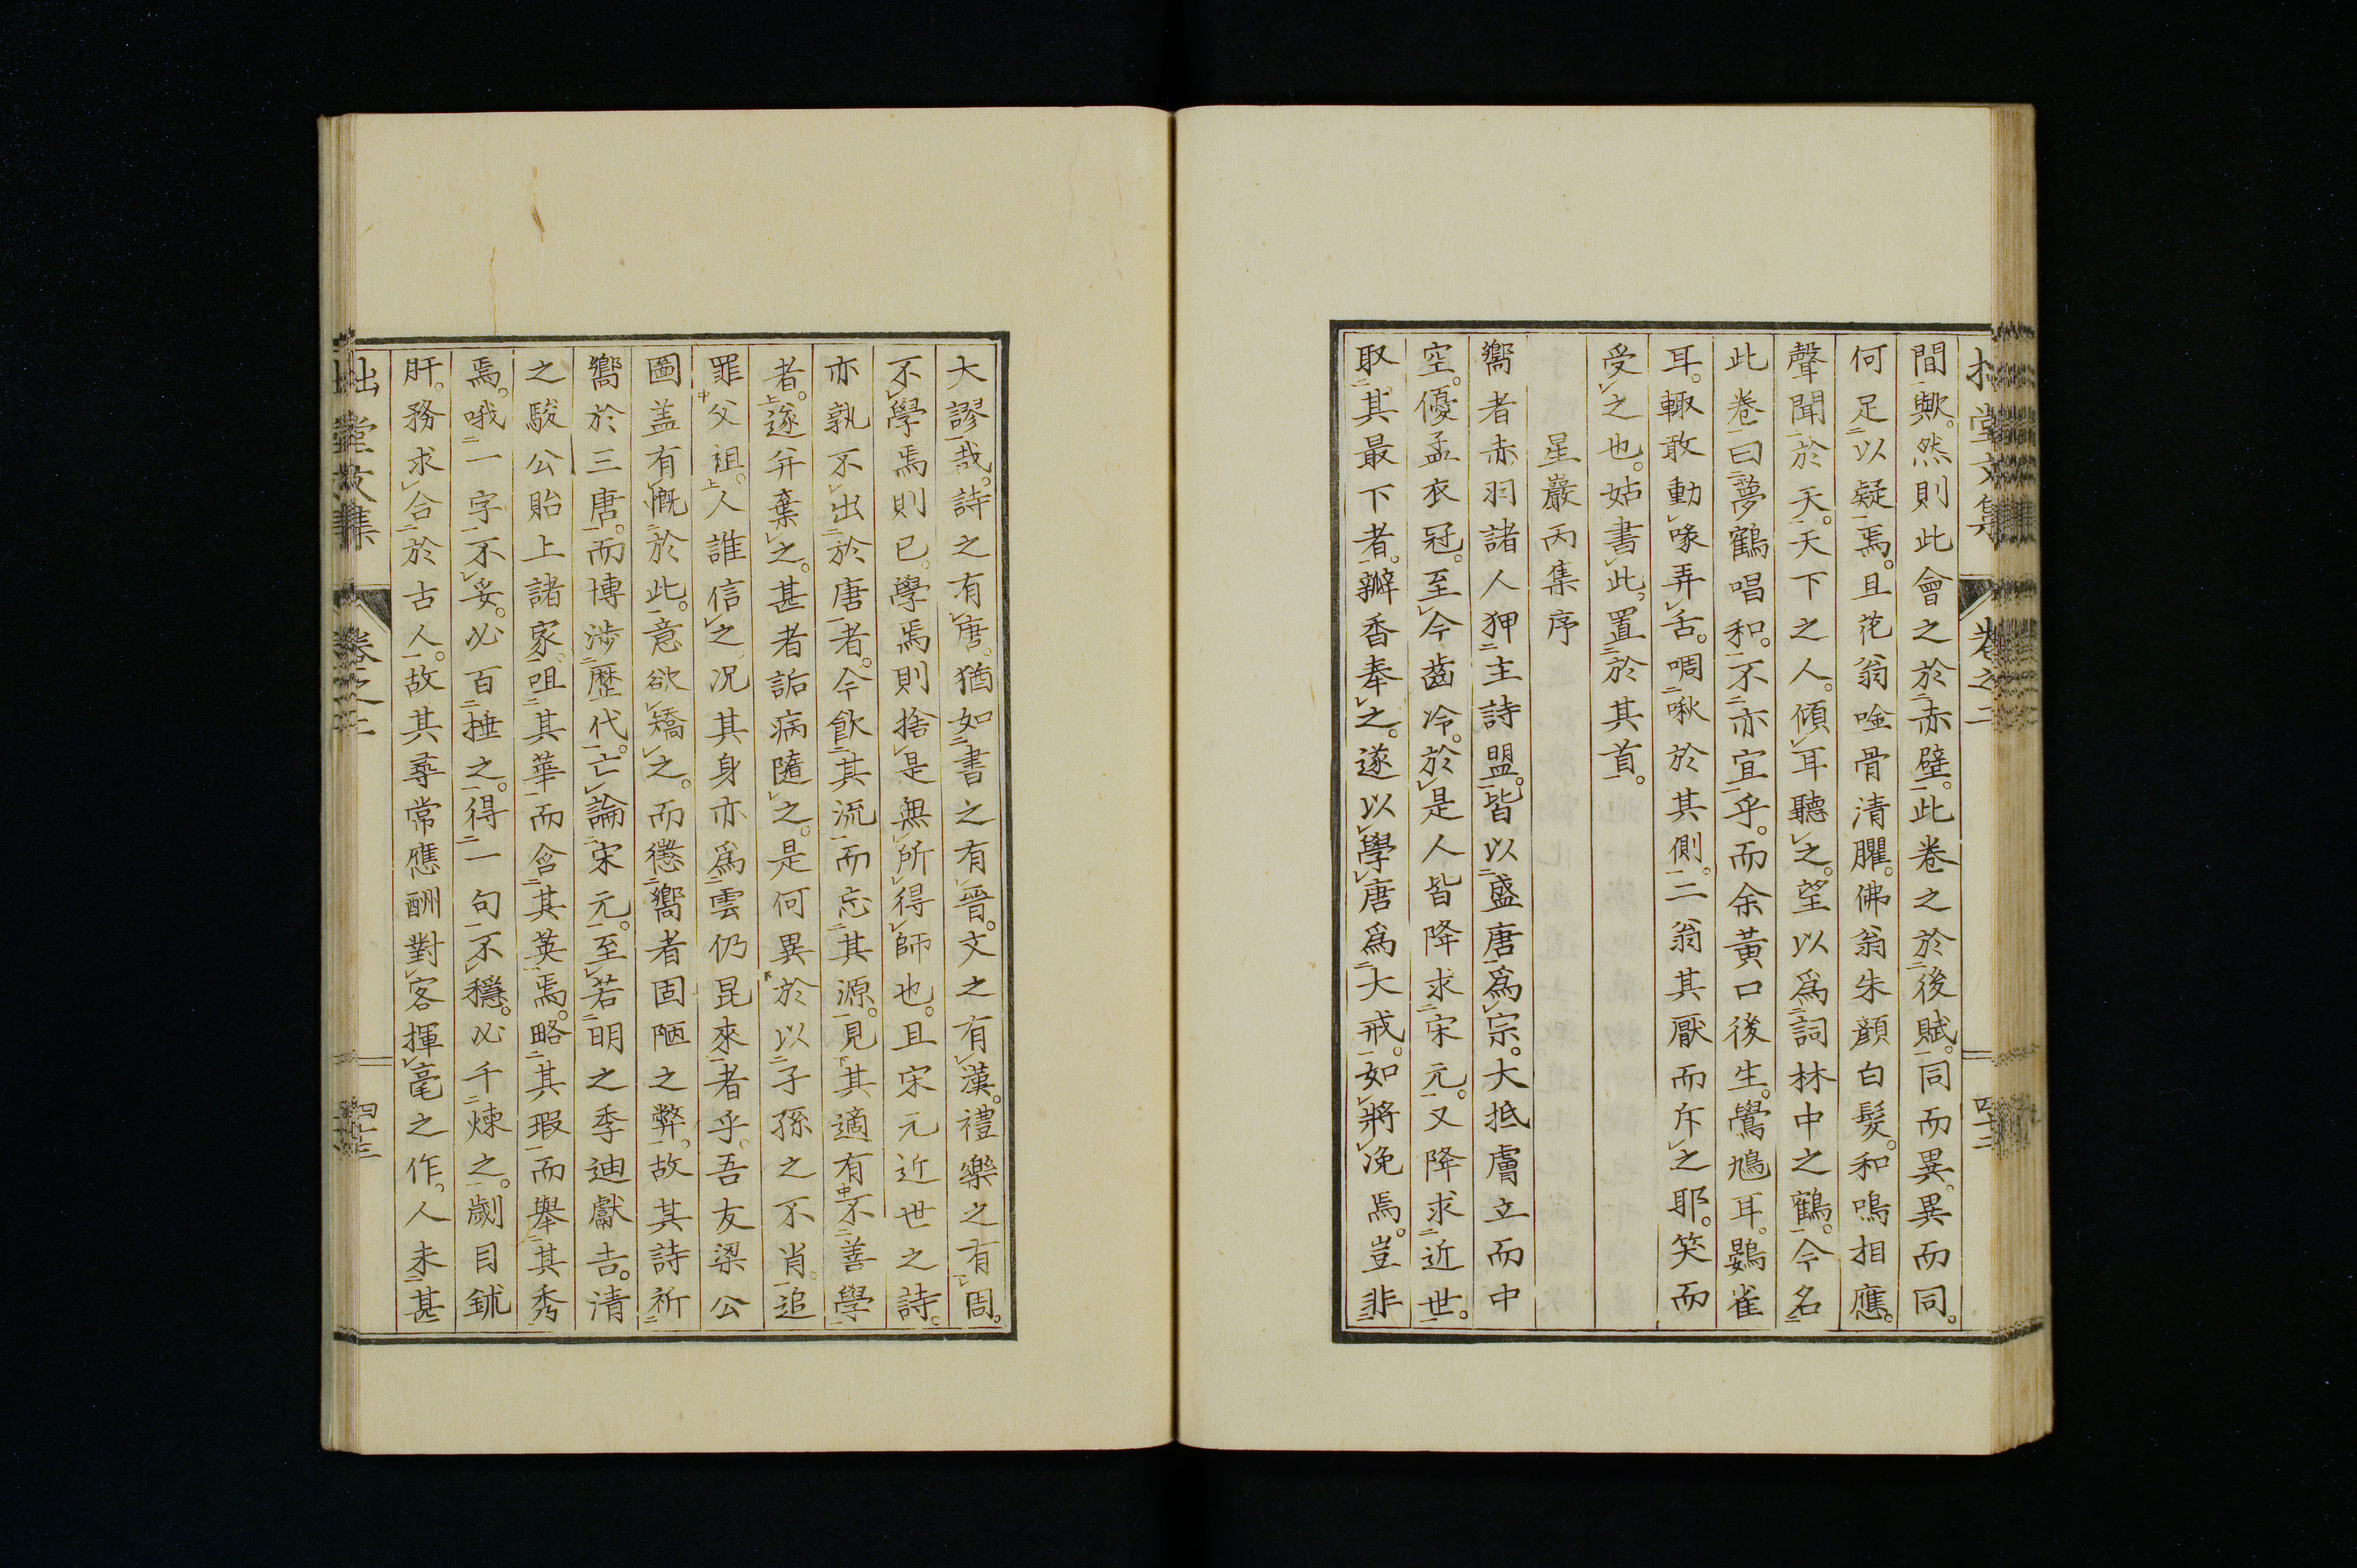 拙堂文集 卷之二 四十二
間歟。然則此會之於赤壁。此卷之於後賦。同而異。異而同。
何足以疑焉。且花翁唫骨清臞。佛翁朱顔白髮。和鳴相應。
聲聞於天。天下之人。傾耳聽之。望以爲詞林中之鶴。今名
此卷曰夢鶴唱和。不亦宜乎。而余黄口後生。鷽鳩耳。鷃雀
耳。輙敢動喙弄舌。啁啾於其側。二翁其厭而斥之耶。笑而
受之也。姑書此。置於其首。
星巖丙集序
嚮者赤羽諸人狎主詩盟。皆以盛唐爲宗。大抵膚立而中
空。優孟衣冠。至今齒冷。於是人皆降求宋元。又降求近世。
取其最下者。瓣香奉之。遂以學唐爲大戒。如將浼焉。豈非
大謬哉。詩之有唐。猶如書之有晉。文之有漢。禮樂之有周。
不學焉則已。學焉則捨是無所得師也。且宋元近世之詩。
亦孰不出於唐者。今飲其流而忘其源。見其適有不善學
者。遂并棄之。甚者詬病隨之。是何異於以子孫之不肖。追
罪父祖。人誰信之。況其身亦爲雲仍昆來者乎。吾友梁公
圖盖有慨於此。意欲矯之。而懲嚮者固陋之弊。故其詩祈
嚮於三唐。而博渉歷代。亡論宋元。至若明之季迪獻吉。清
之駿公貽上諸家。咀其華而含其英焉。略其瑕而舉其秀
焉。哦一字不妥。必百捶之。得一句不穩。必千煉之。劌目鉥
肝。務求合於古人。故其尋常應酬對客揮毫之作。人未甚
拙堂文集 卷之二